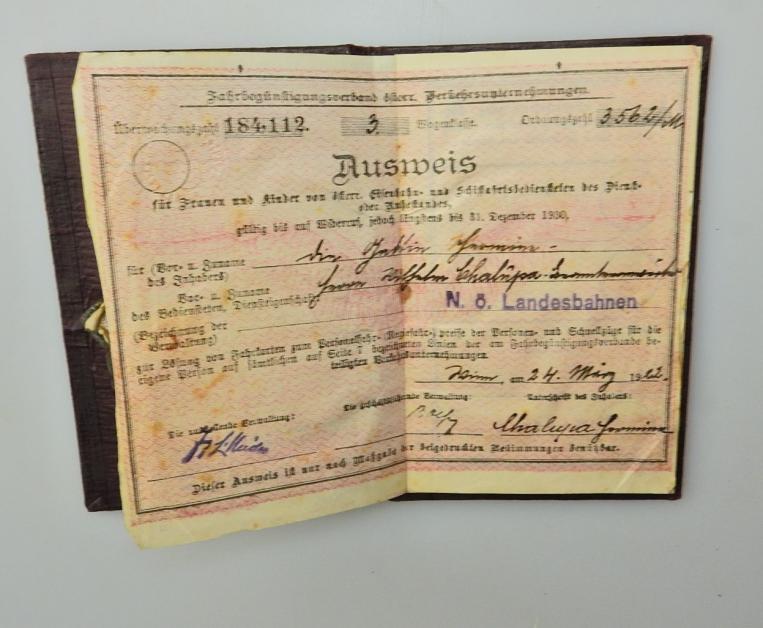 Fahrbegünstigungsverband österr. Verkehrsunternehmungen.
Überwachungszahl 184.112. 3. Wagenklasse. Ordnungszahl 3562/M
Ausweis
für Frauen und Kinder von österr. Eisenbahn- und Schiffahrtsbediensteten des Dienst-
oder Ruhestandes,
gültig bis auf Widerruf, jedoch längstens bis 31. Dezember 1930,
für (Vor- u. Zuname
des Inhabers) die Gattin Hermine
Vor- u. Zuname
des Bediensteten, Diensteigenschaft: Herrn Wilhelm Chalupa
(Bezeichnung der
Verwaltung) N. ö. Landesbahnen
zur Lösung von Fahrkarten zum Personalfahr- (Regiefahr-) preise der Personen- und Schnellzüge für die
eigene Person auf sämtlichen auf Seite 7 bezeichneten Linien der am Fahrbegünstigungsverbande be-
teiligten Verkehrsunternehmungen.
Wien, am 24. März 19
Die ausstellende Verwaltung: Die geschäftsführende Verwaltung: Unterschrift des Inhabers:
Chalupa Hermine
Dieser Ausweis ist nur nach Maßgabe der beigedruckten Bestimmungen benützbar.